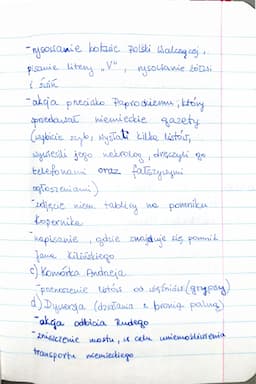 -rysowanie kotwic Polski Walczącej,
pisanie litery „V", rysowanie żółwi
i świń
-akcja przeciwko Paprockiemu, który
sprzedawał niemieckie gazety
(wybicie szyb, wysłali kilka listów,
wywiesili jego nekrolog, dręczyli go
telefonami oraz fałszywymi
ogłoszeniami)
-zdjęcie niem. tablicy na pomniku
Kopernika
-napisanie, gdzie znajduje się pomnik
Jana Kilińskiego
c) Komórka Andrzeja
-przenoszenie listów od więźniów (grypsy)
d) Dywersja (działania z bronią palną)
-akcja odbicia Rudego
-zniszczenie mostu, w celu uniemożliwienia
transportu niemieckiego